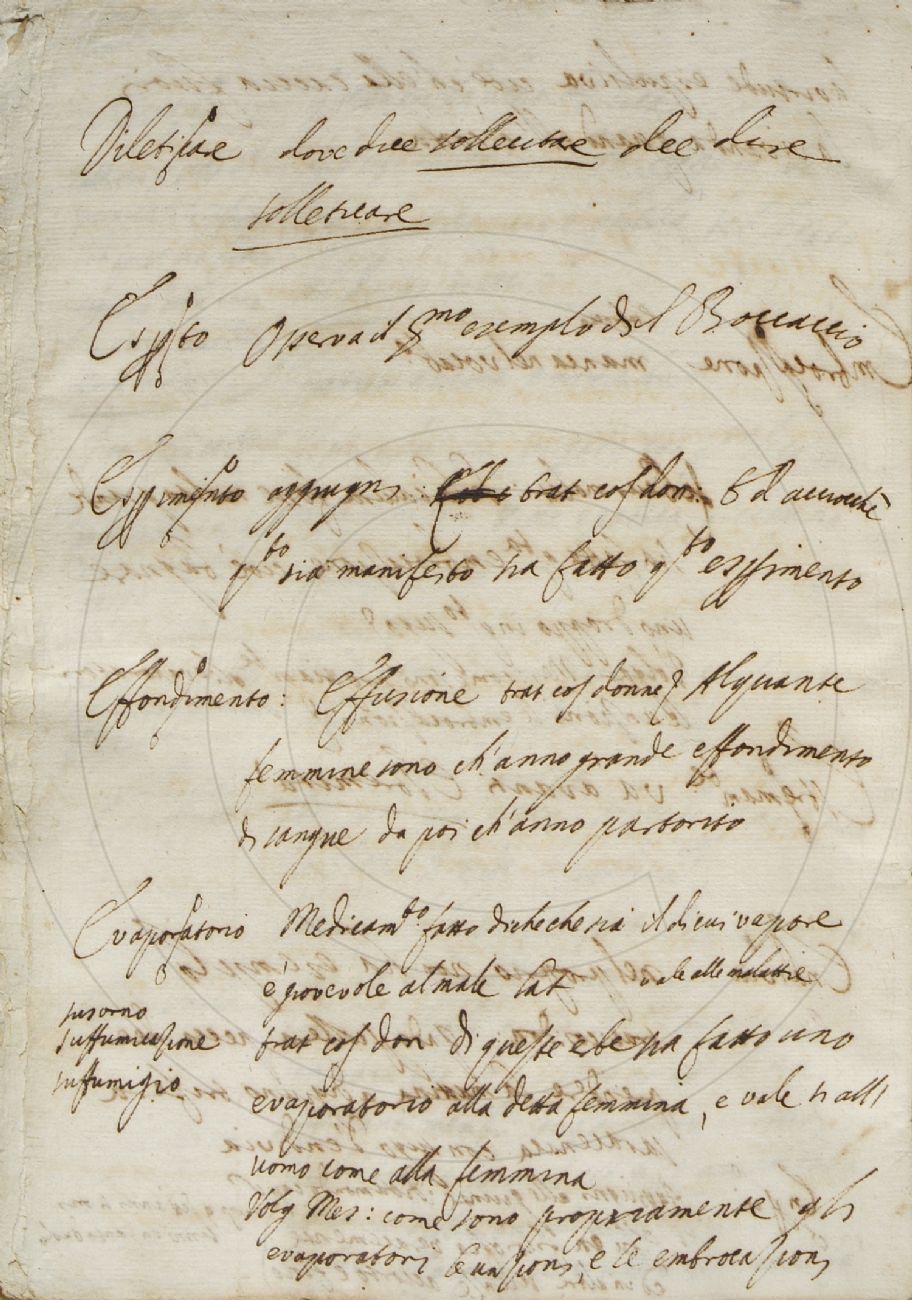 Dileticare dove dice sollecitare dee dire
solleticare
Osserva il pmo esemplo del Boccaccio
aggiugni trat cos don: Ed acciochè
qsto sia manifesto sia fatto qsto
Effondimento: Effusione trat cos donne Alquante
femmine sono ch'anno grande effondimento
di sangue da poi ch'anno partorito
Evaporatorio Medicamto fatto di che che sia il di cui vapore
è giovevole al male Lat vale alle malattie
suffumicazione
suffumigio
trat cos don di queste erbe sia fatto uno
evaporatorio alla detta femmina, e vale si all
uomo come alla femmina
Volg Mes: come sono propriamente gli
evaporatori le unzioni, e le embrocazioni